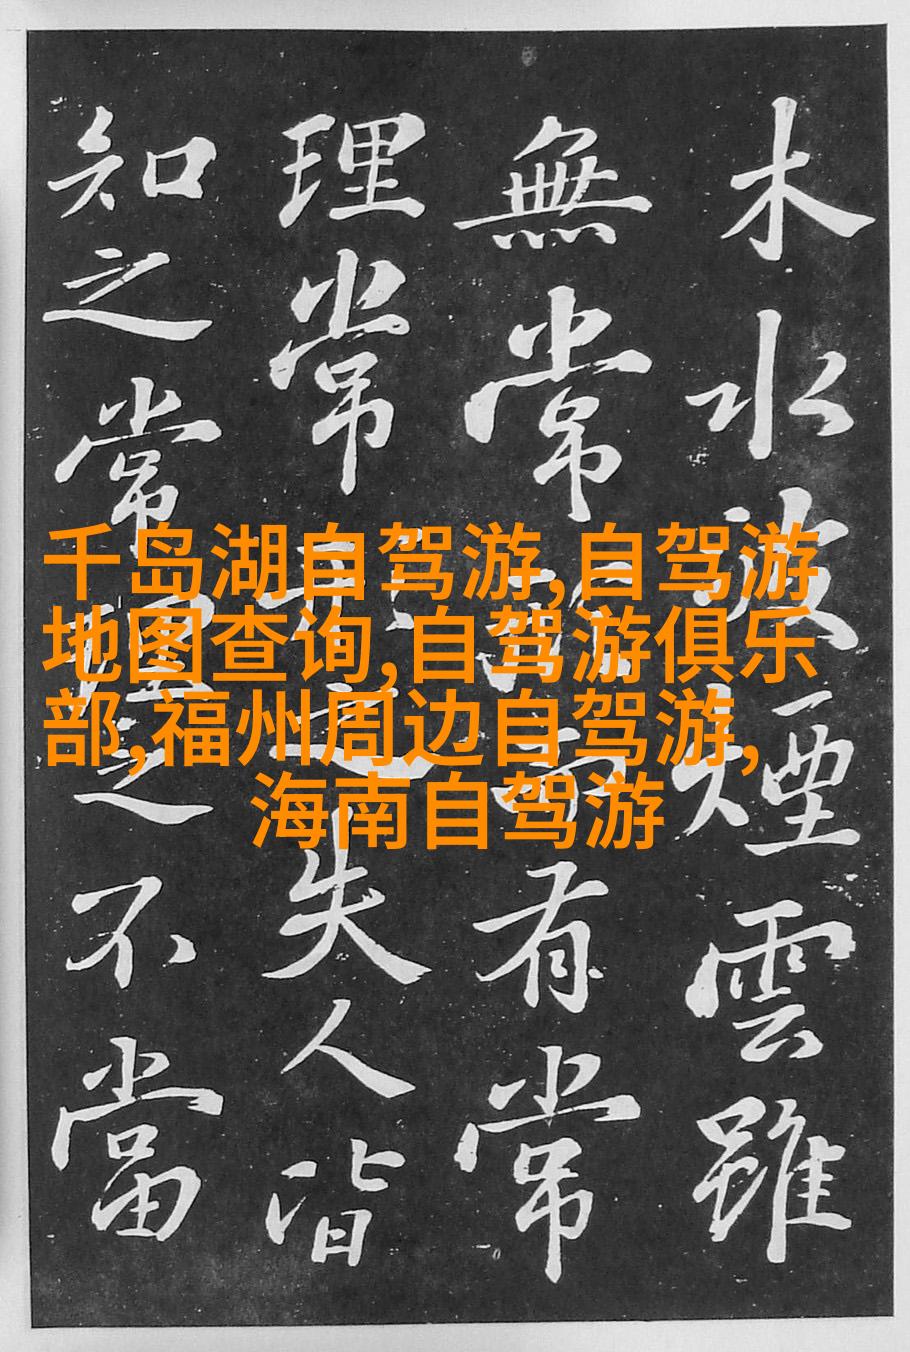 千岛湖自驾游,自驾游
地图查询,自驾游俱乐
部,福州周边自驾游,
海南自驾游
木水波煙雲雖
無常形而有常
理常形之失人皆
知之常理之不當